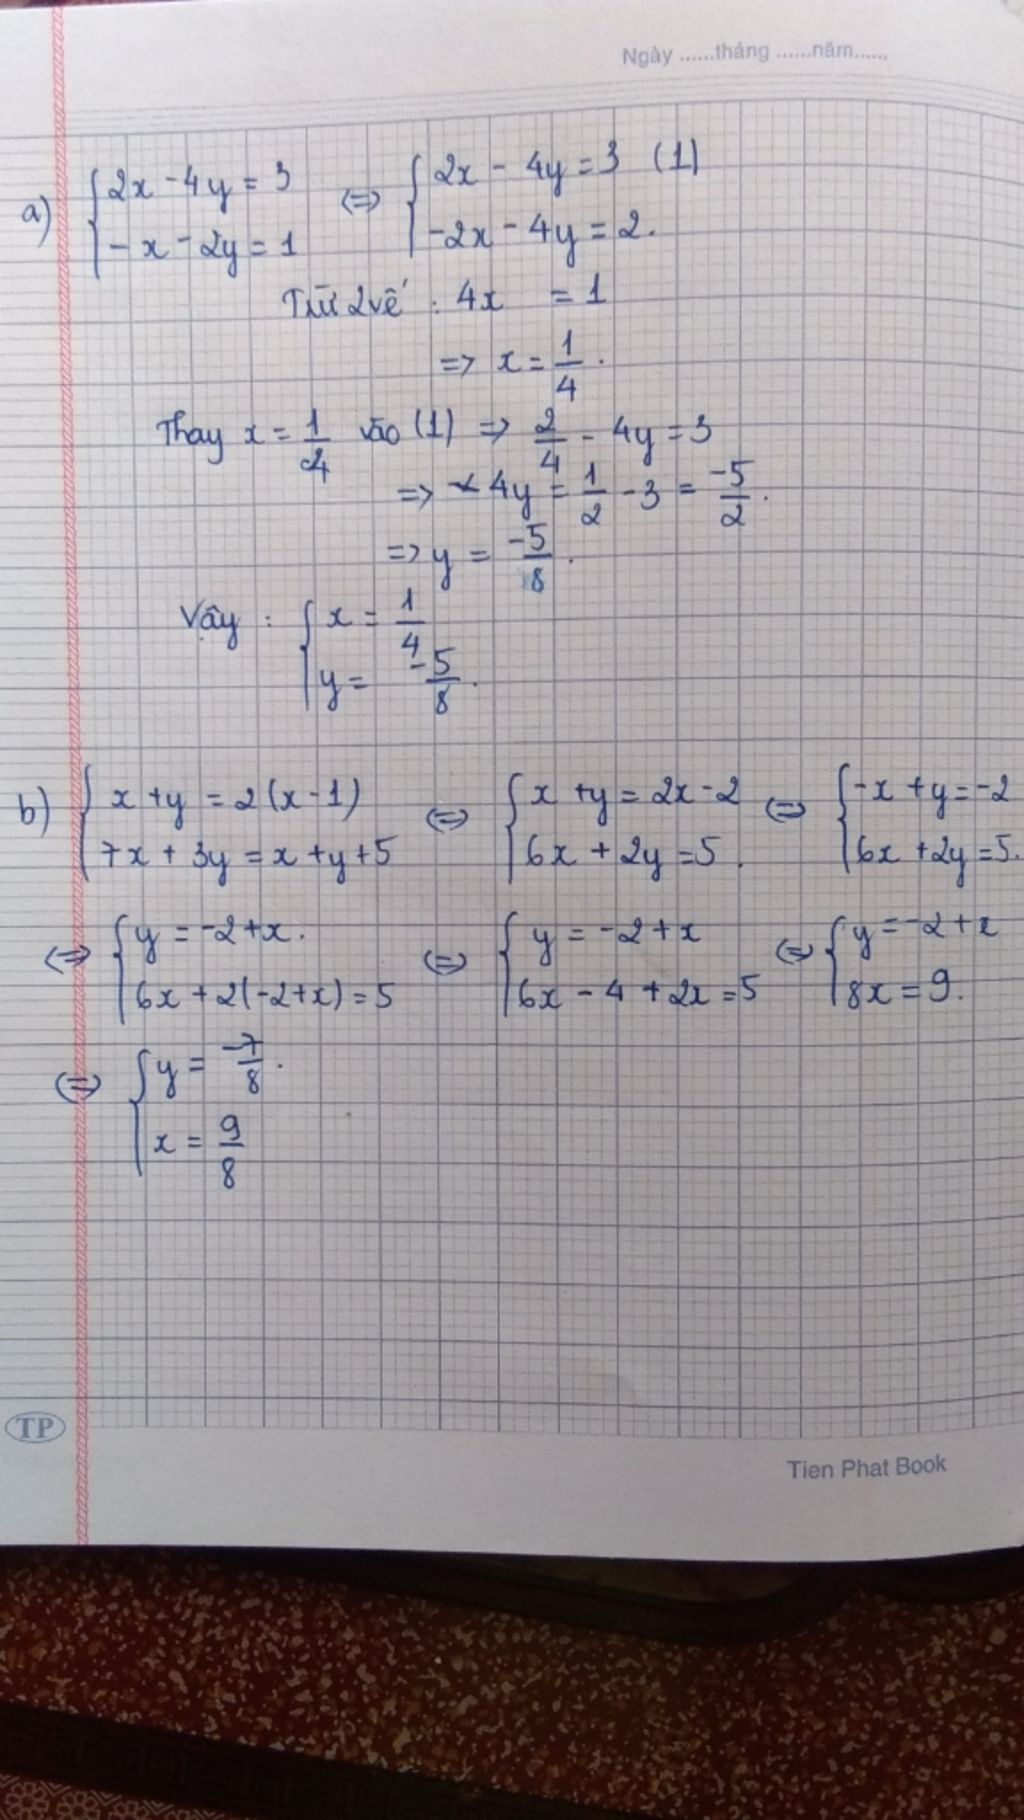 Ngày ......tháng ......năm......
a) { 2x - 4y = 3 <=> { 2x - 4y = 3 (1)
- x - 2y = 1 -2x - 4y = 2.
Trừ 2 vế : 4x = 1
=> x = 1/4 .
Thay x = 1/4 vào (1) => 2/4 - 4y = 3
=> 4y = 1/2 - 3 = -5/2 .
=> y = -5/8 .
Vậy : { x = 1/4
y = -5/8 .
b) { x + y = 2(x - 1) <=> { x + y = 2x - 2 <=> { -x + y = -2
7x + 3y = x + y + 5 6x + 2y = 5 . 6x + 2y = 5.
<=> { y = -2 + x . <=> { y = -2 + x <=> { y = -2 + x
6x + 2(-2 + x) = 5 6x - 4 + 2x = 5 8x = 9.
<=> { y = -7/8 .
x = 9/8
TP
Tien Phat Book